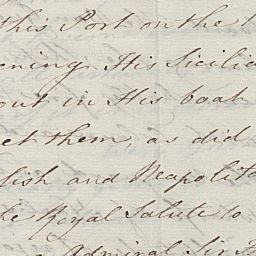 this Port on the
ening His Sicilia
out in His boat
et them, as did
lish and Neapolita
Royal Salute to
Admiral Sir